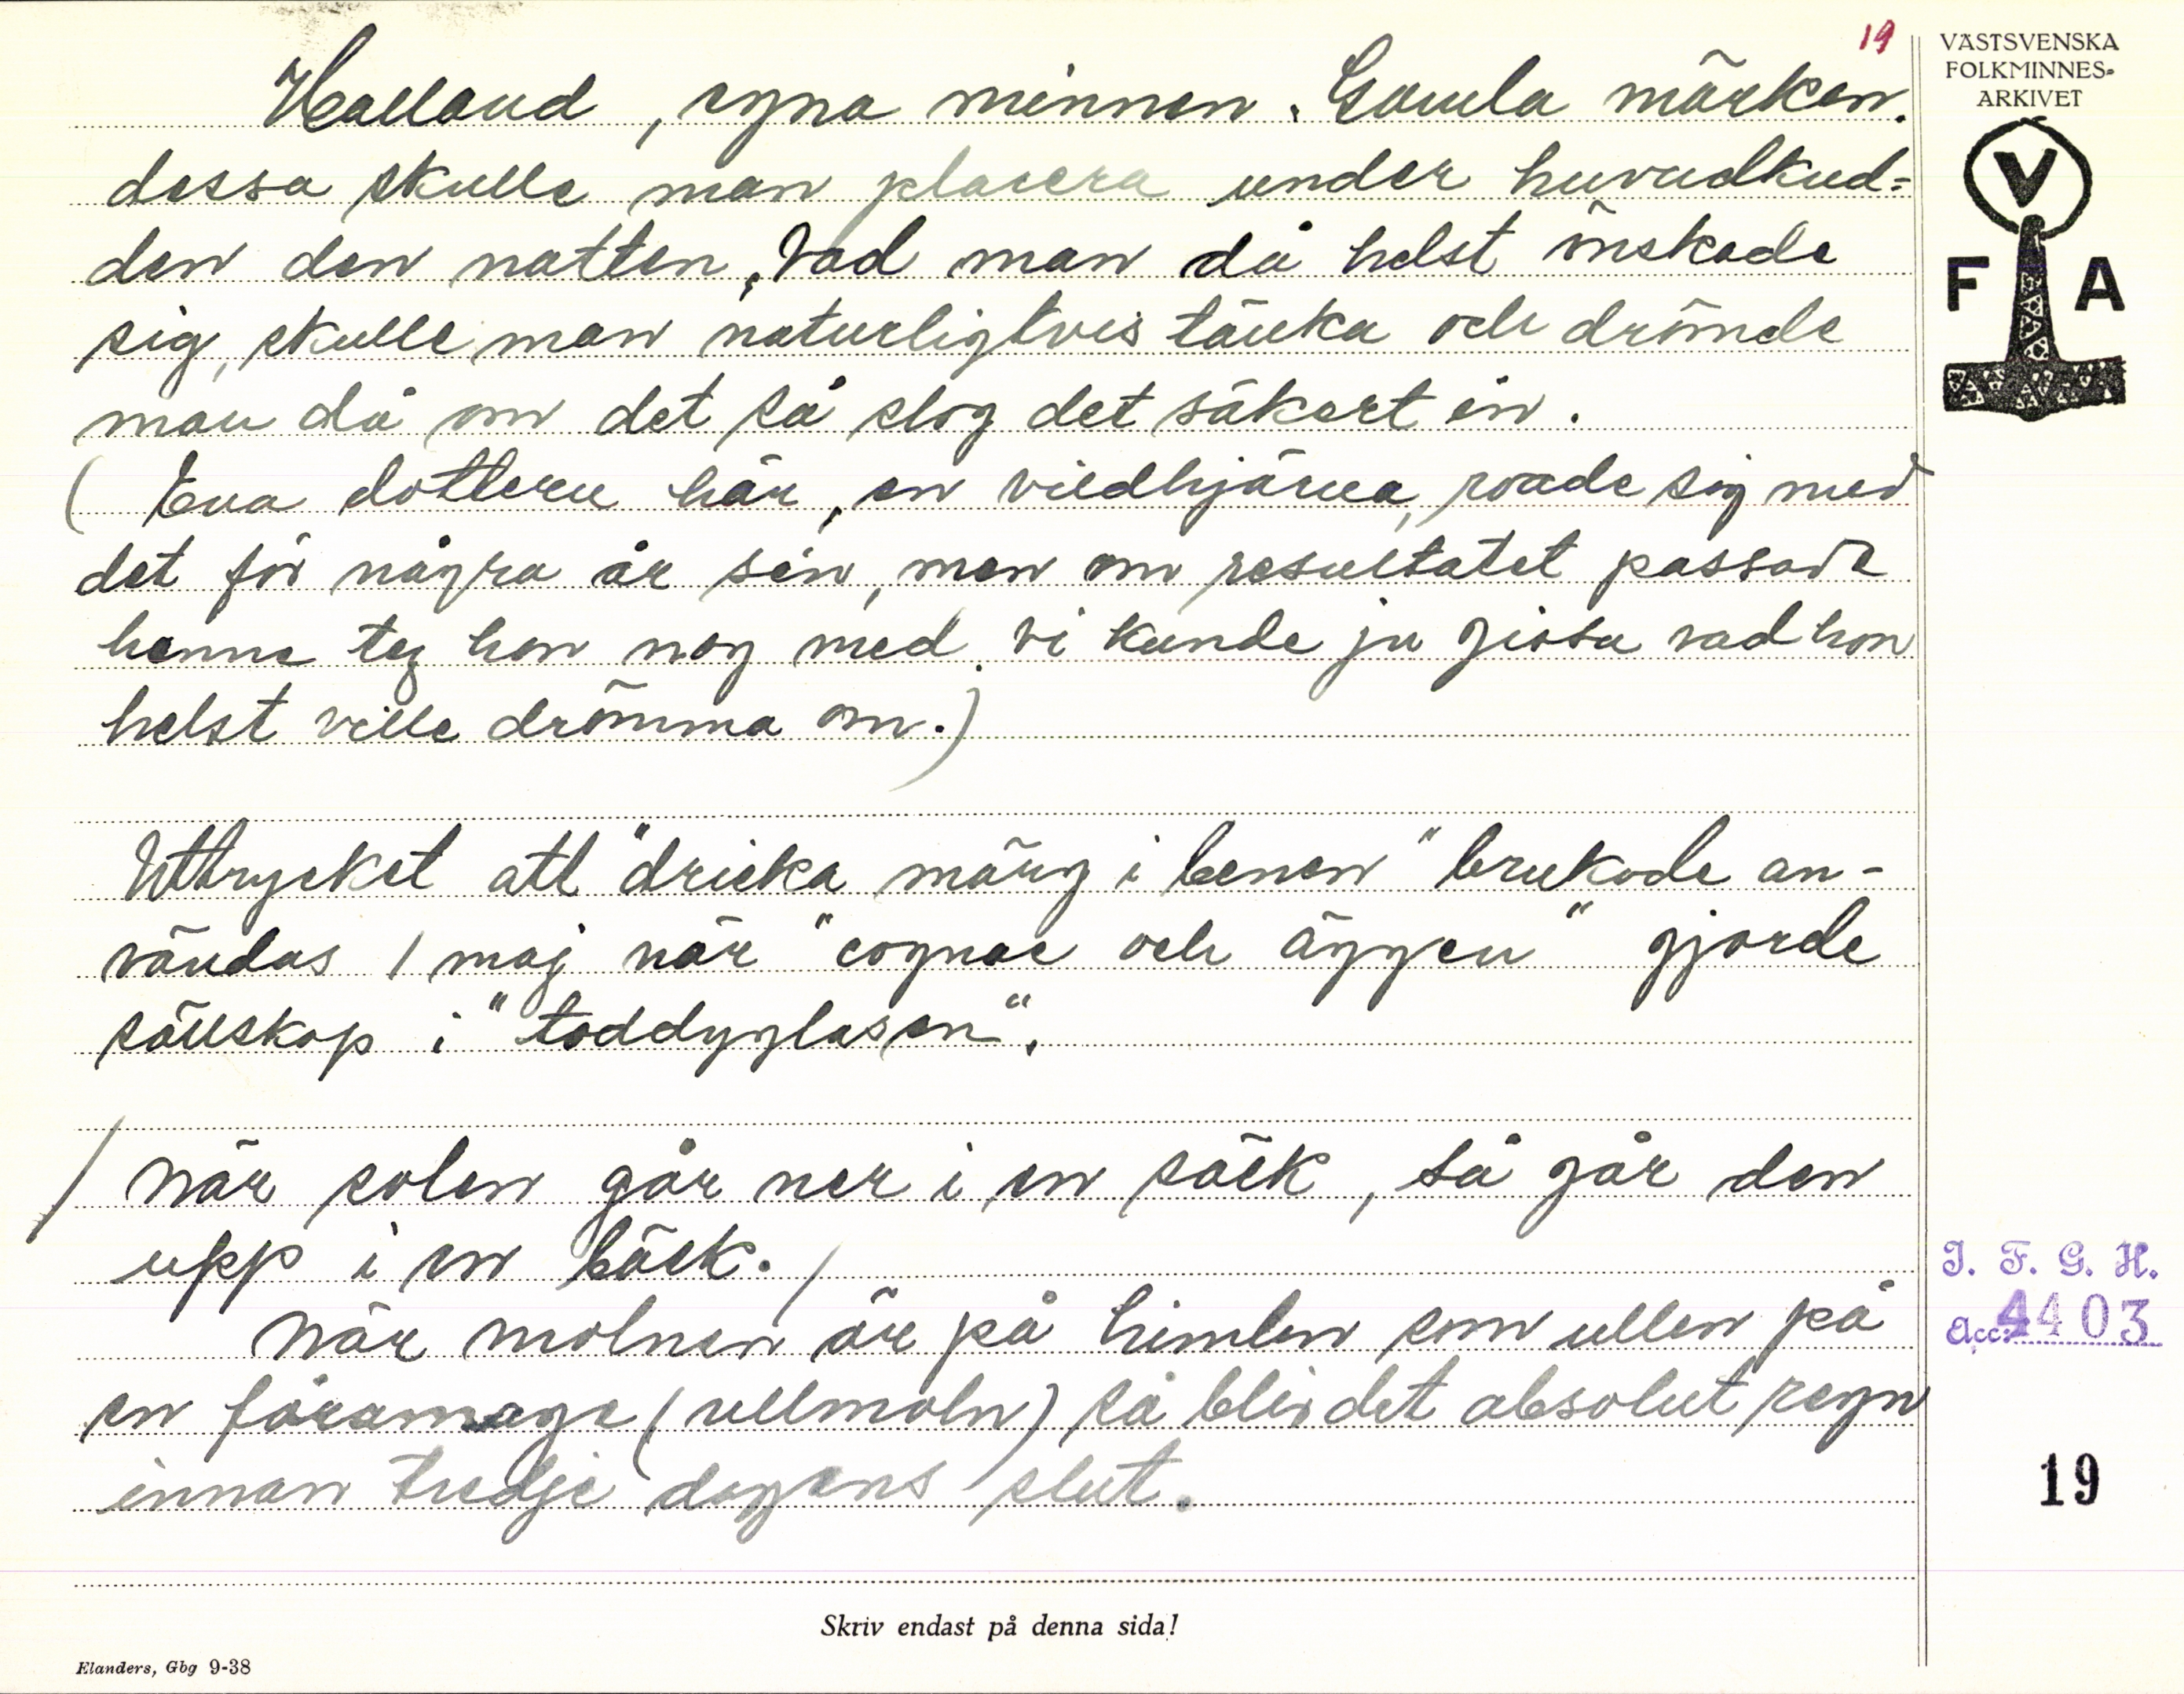 19
VÄSTSVENSKA
FOLKMINNES-
ARKIVET
V
F A
Halland, egna minnen. Gamla märken.
dessa skulle man placera under huvudkud=
den den natten, Vad man då helst önskade
sig, skulle man naturligtvis tänka och drömde
man då om det så slog det säkert in.
( Ena dottern här, en vildhjärna, roade sig med
det för några år sén, men om resultatet passade
henne teg hon nog med. vi kunde ju gissa vad hon
helst ville drömma om.)
Uttrycket att "dricka märg i benen" brukade an-
vändas 1 maj när "cognac och äggen" gjorde
sällskap i "toddyglasen".
/ När solen går ner i en säck, så går den
upp i en bäck. /
När molnen är på himlen som ullen på
en fåramage (ullmoln) så blir det absolut regn
innan tredje dagens slut.
I. F. G. H.
Acc: 4403
19
Skriv endast på denna sida!
Elanders, Gbg 9-38